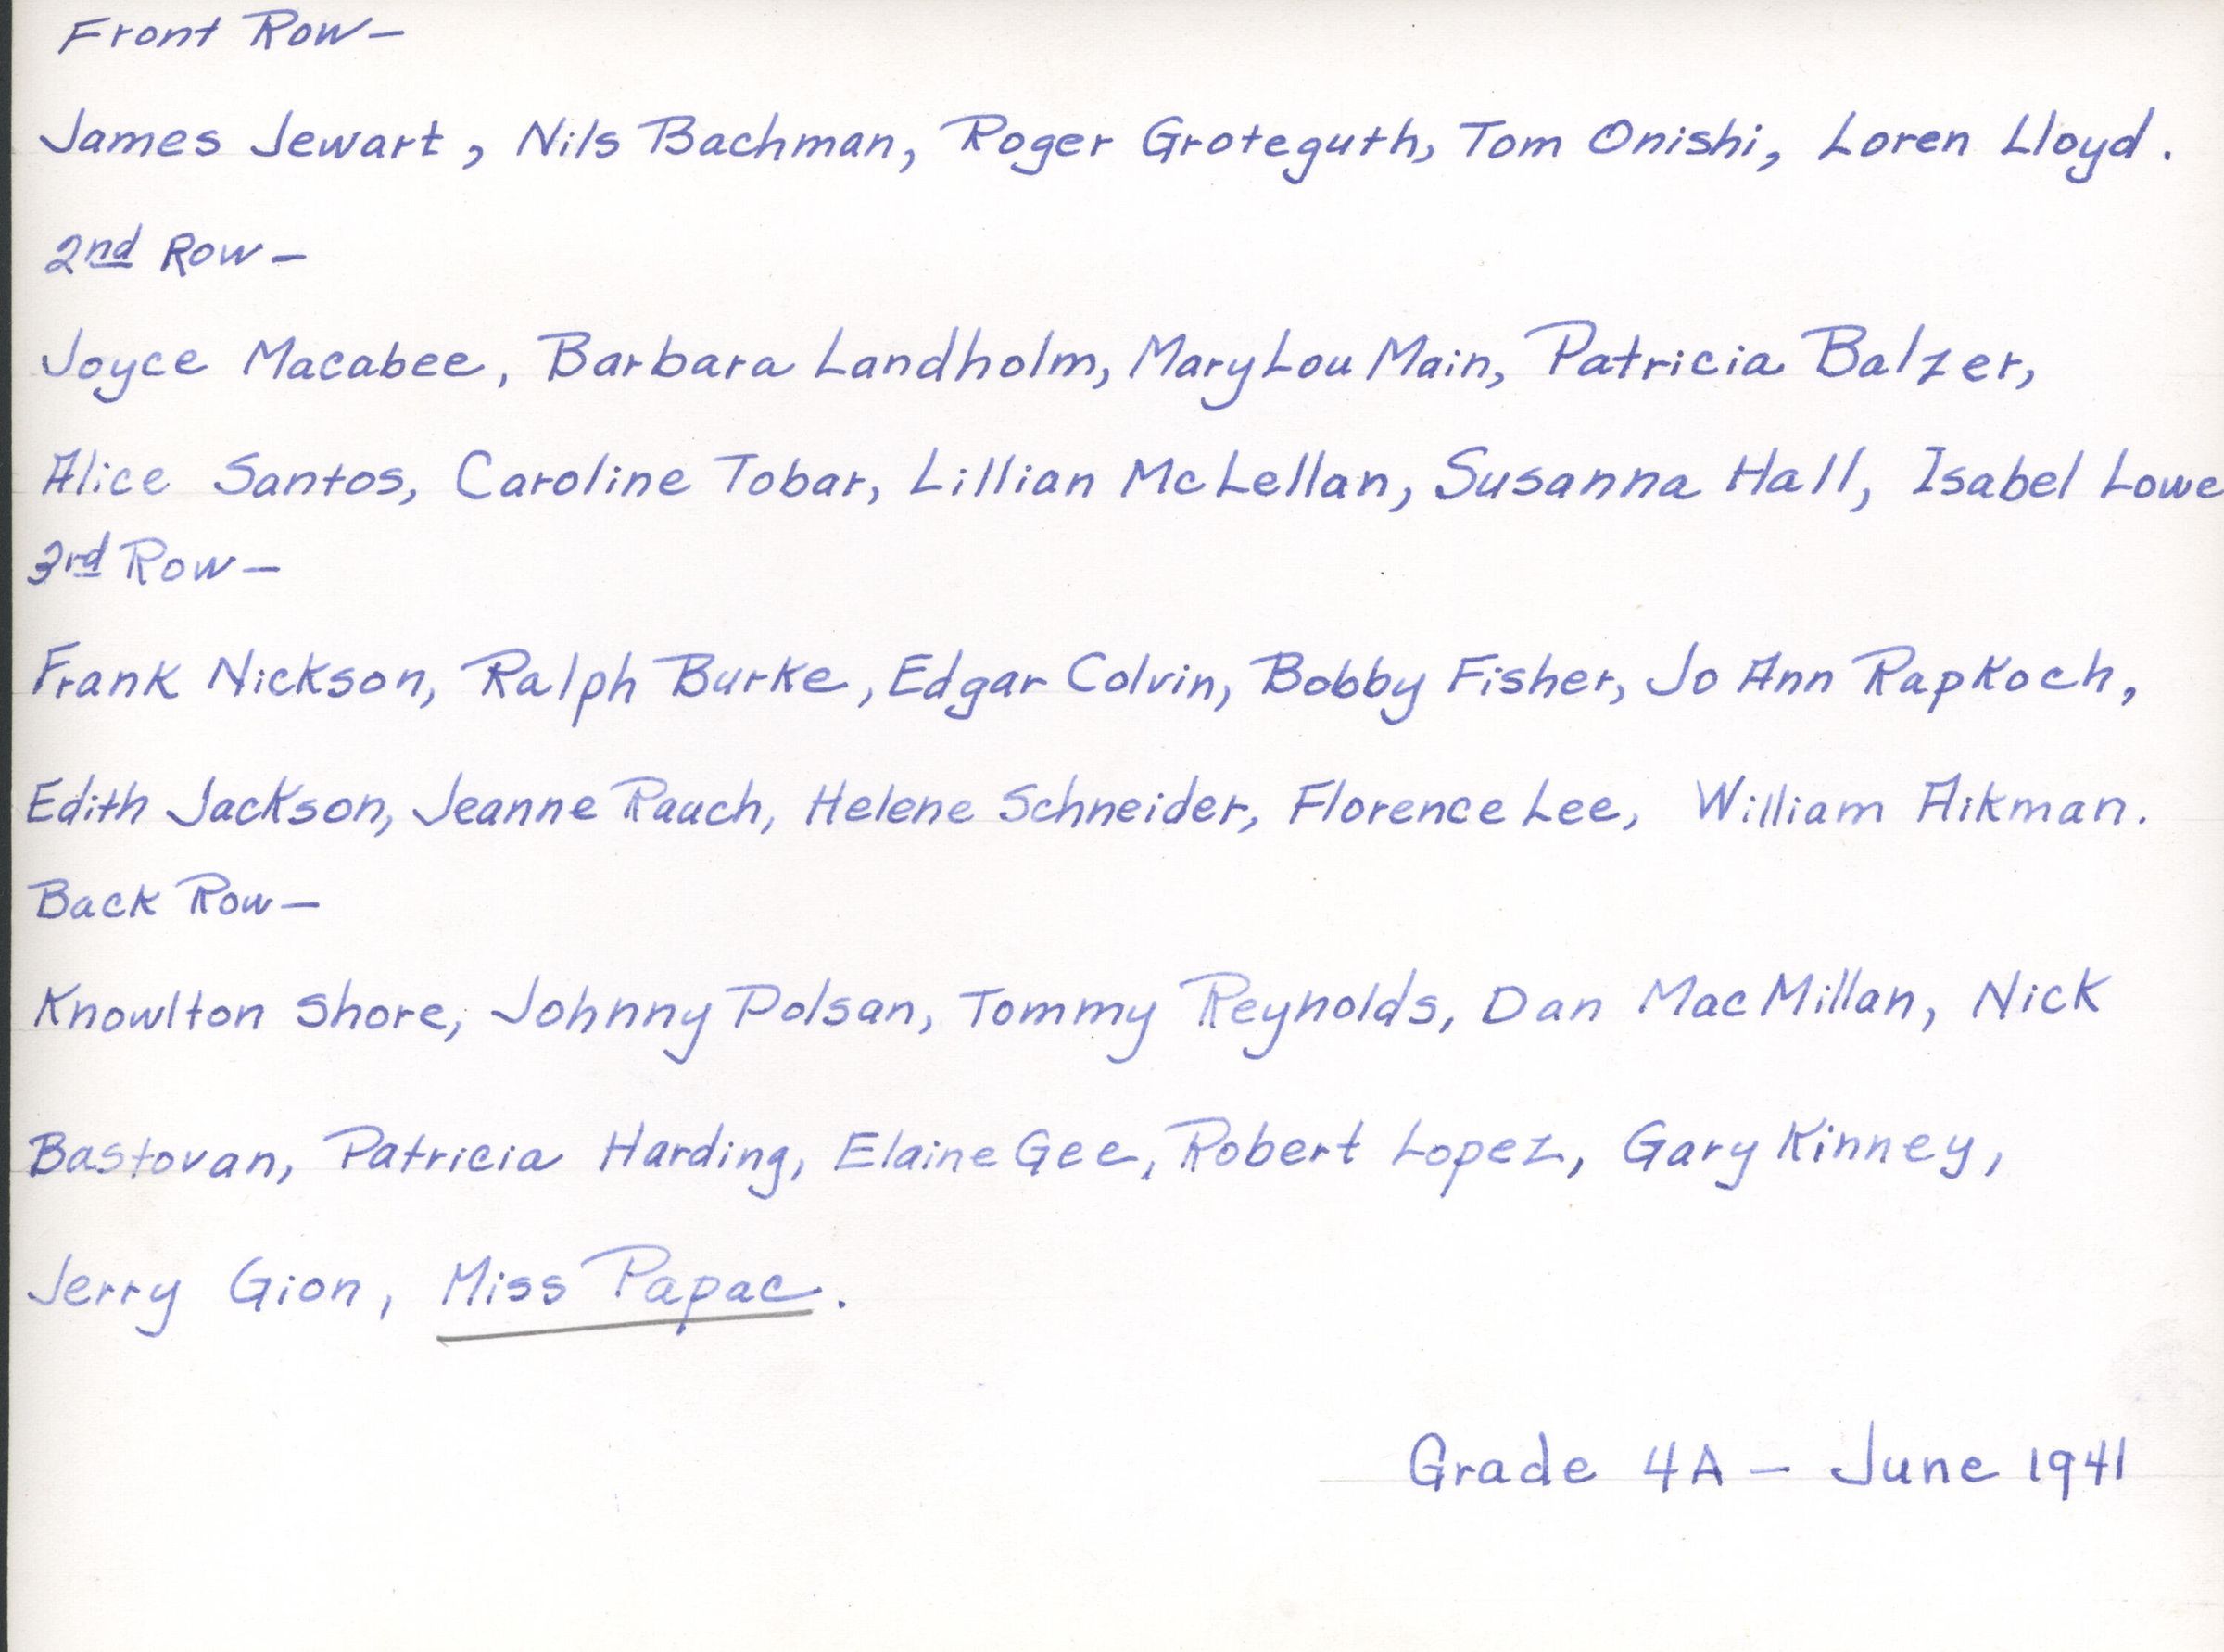 Front Row—
James Jewart, Nils Bachman, Roger Groteguth, Tom Onishi, Loren Lloyd.
2nd Row—
Joyce Macabee, Barbara Landholm, Mary Lou Main, Patricia Balzer,
Alice Santos, Caroline Tobar, Lillian McLellan, Susanna Hall, Isabel Lowe
3rd Row—
Frank Nickson, Ralph Burke, Edgar Colvin, Bobby Fisher, Jo Ann Rapkoch,
Edith Jackson, Jeanne Rauch, Helene Schneider, Florence Lee, William Aikman.
Back Row—
Knowlton Shore, Johnny Polsan, Tommy Reynolds, Dan MacMillan, Nick
Bastovan, Patricia Harding, Elaine Gee, Robert Lopez, Gary Kinney,
Jerry Gion, Miss Papac.
Grade 4A — June 1941